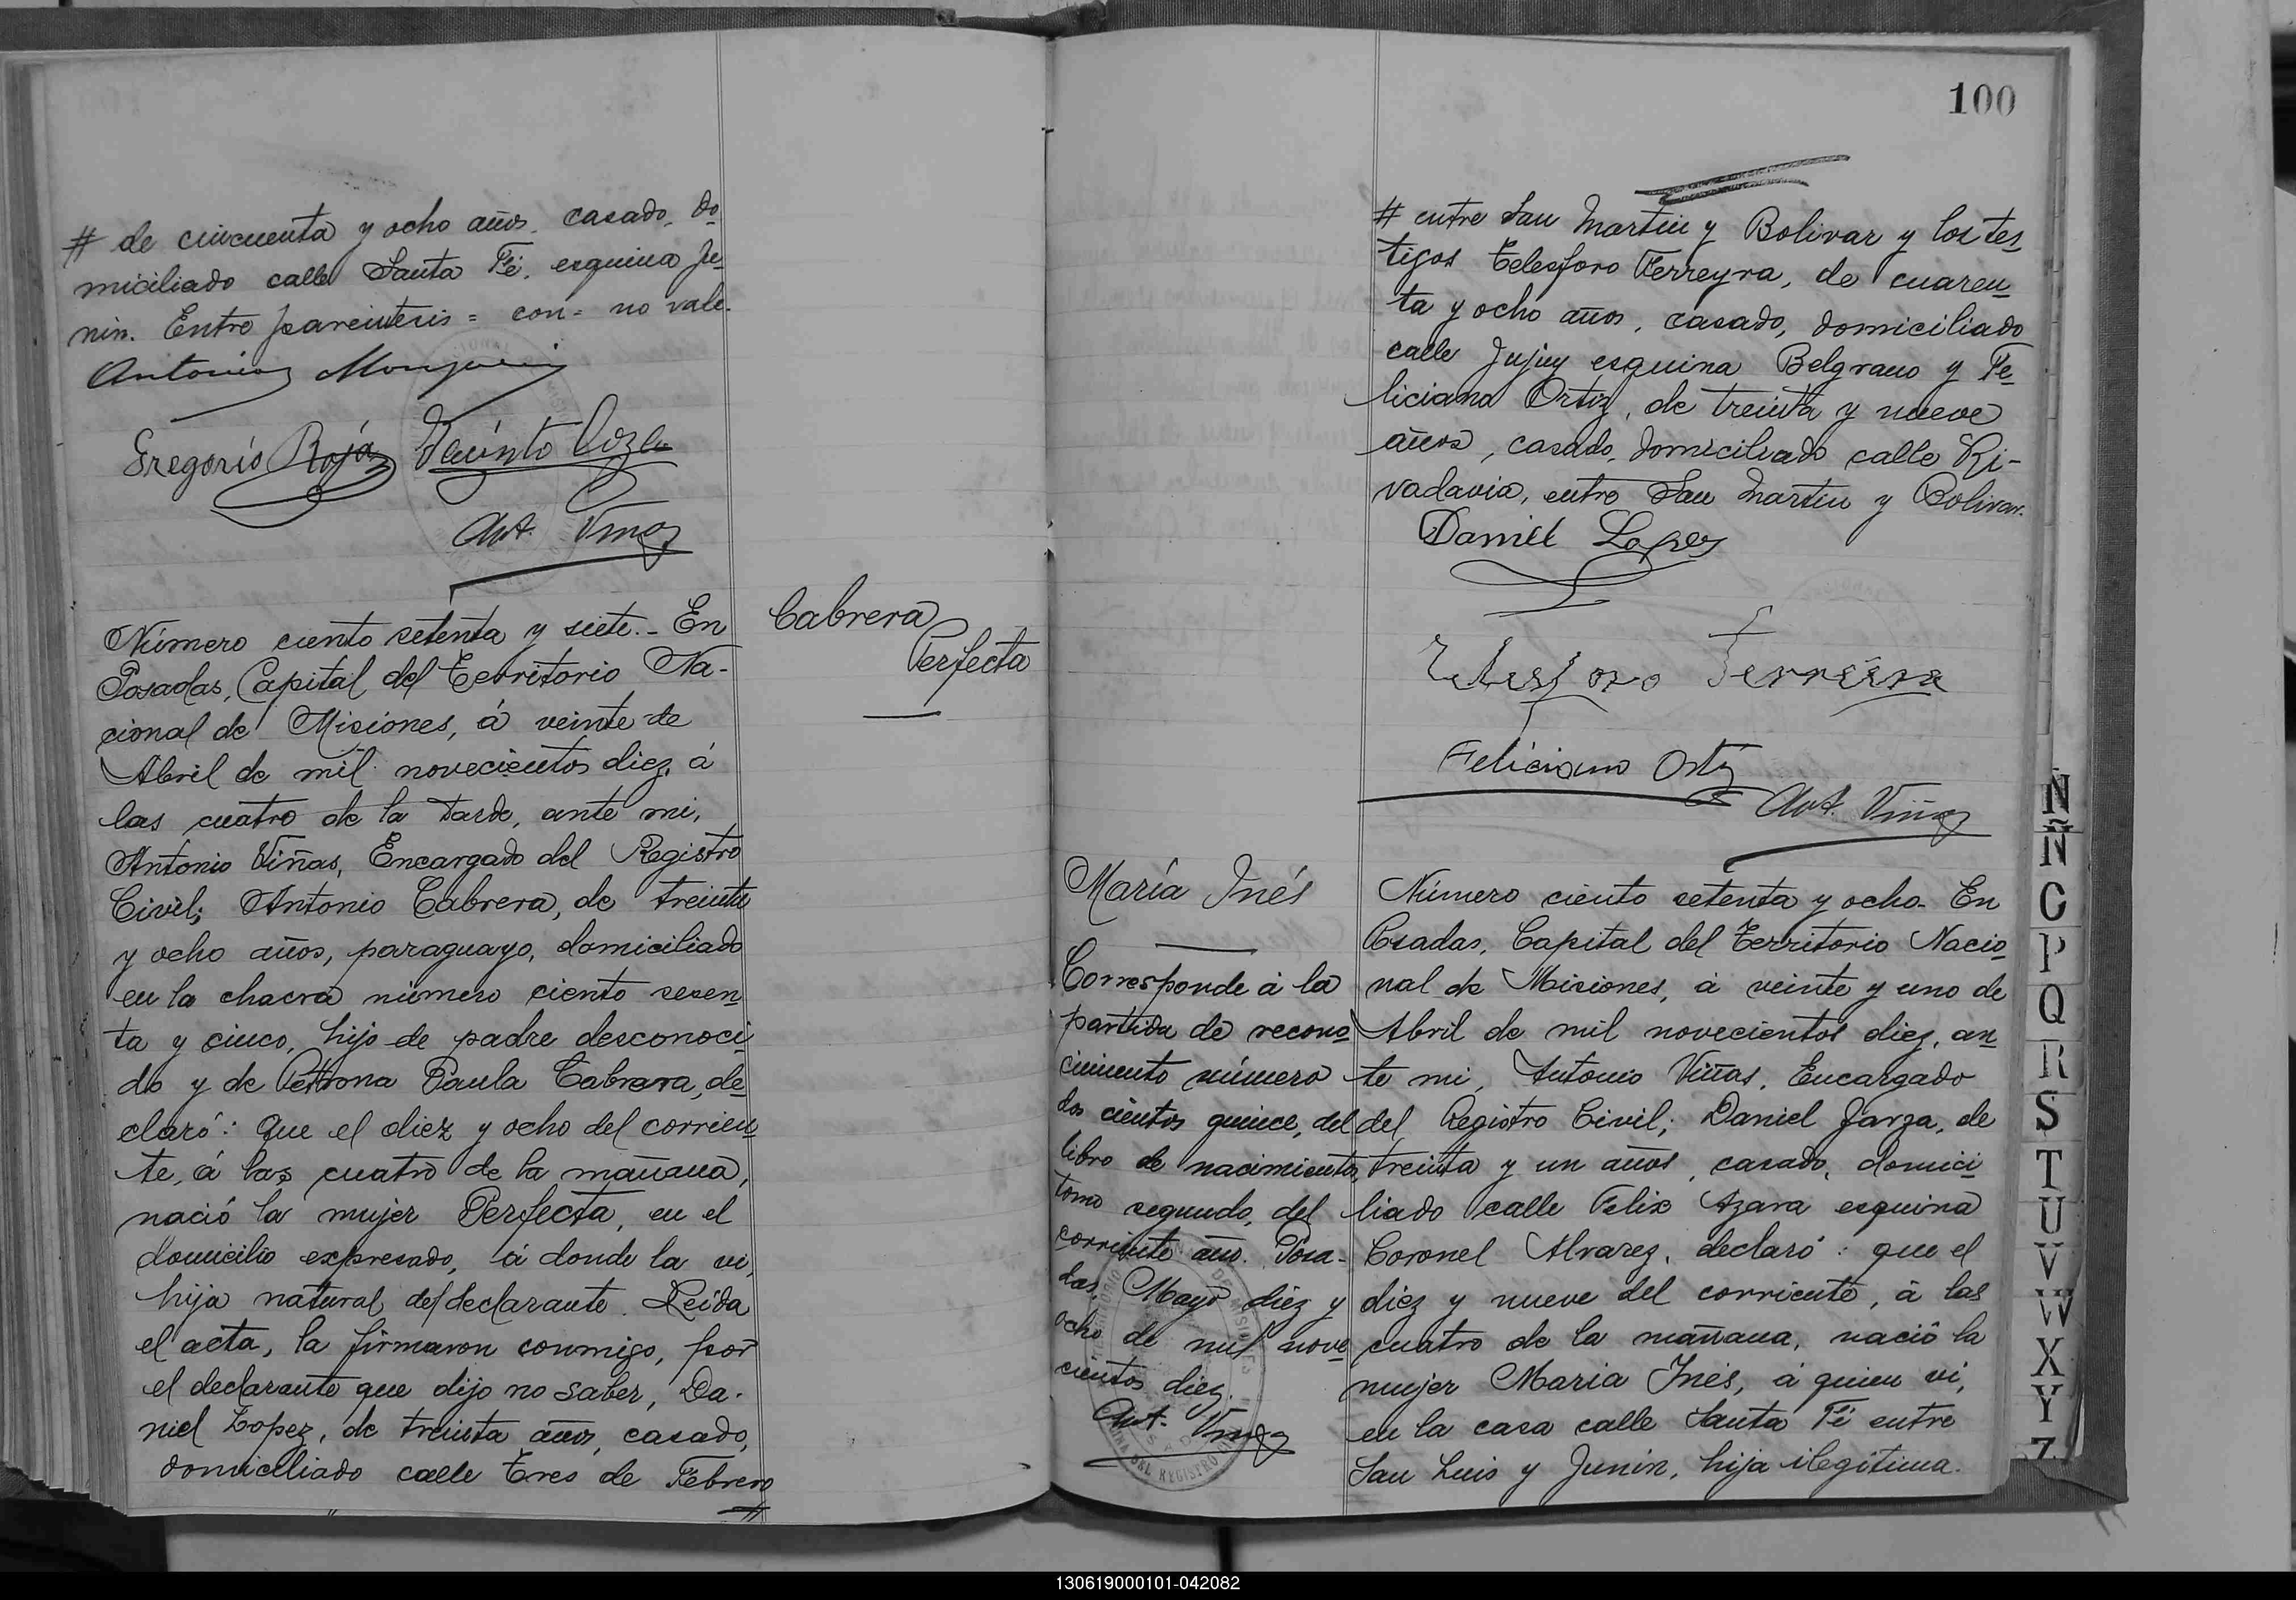 # de cincuenta y ocho años, casado, do_
miciliado calle Santa Fé, esquina Ju_
nin. Entre parentesis = con = no vale.
Antonio
Gregorio Rojas
Ant. Viñas
Número ciento setenta y siete.- En
Posadas, Capital del Territorio Na-
cional de Misiones, á veinte de
Abril de mil novecientos diez, á
las cuatro de la tarde, ante mi,
Antonio Viñas, Encargado del Registro
Civil; Antonio Cabrera, de treinta
y ocho años, paraguayo, domiciliado
en la chacra número ciento sesen_
ta y cinco, hijo de padre desconoci_
do y de Petrona Paula Cabrera, de_
claró: que el diez y ocho del corrien_
te, á las cuatro de la mañana,
nació la mujer Perfecta, en el
domicilio expresado, á donde la vi,
hija natural del declarante. Leida
el acta, la firmaron conmigo, por
el declarante que dijo no saber, Da-
niel Lopez, de treinta años, casado,
domiciliado calle Tres de Febrero
#
Cabrera
Perfecta
100
# entre San Martin y Bolivar y los tes_
tigos Telesforo Ferreyra, de cuaren_
ta y ocho años, casado, domiciliado
calle Jujuy esquina Belgrano y Fe_
liciano Ortiz, de treinta y nueve
años, casado, domiciliado calle Ri-
vadavia, entre San Martin y Bolivar.
Daniel Lopez
Telesforo Ferreira
Feliciano Ortiz
Ant. Viñas
María Inés
Corresponde á la
partida de recono_
cimiento número
dos cientos quince, del
libro de nacimiento,
tomo segundo, del
corriente año. Posa-
das, Mayo diez y
ocho de mil nove_
cientos diez.
Ant. Viñas
Número ciento setenta y ocho- En
Posadas, Capital del Territorio Nacio_
nal de Misiones, á veinte y uno de
Abril de mil novecientos diez, an_
te mi, Antonio Viñas, Encargado
del Registro Civil; Daniel Jarza, de
treinta y un años, casado, domici_
liado calle Felix Azara esquina
Coronel Alvarez, declaró: que el
diez y nueve del corriente, á las
cuatro de la mañana, nació la
mujer Maria Inés, á quien vi,
en la casa calle Santa Fé entre
San Luis y Junin, hija ilegitima.
N
Ñ
O
P
Q
R
S
T
U
V
W
X
Y
Z
130619000101-042082